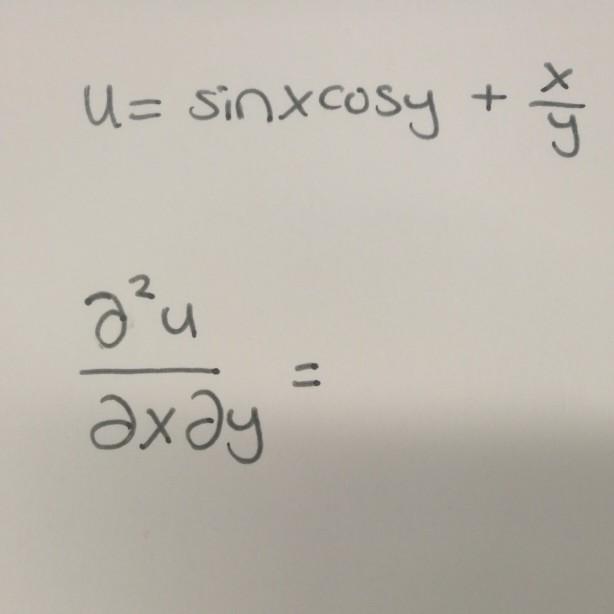 u = sinxcosy + x/y
∂²u/∂x∂y =